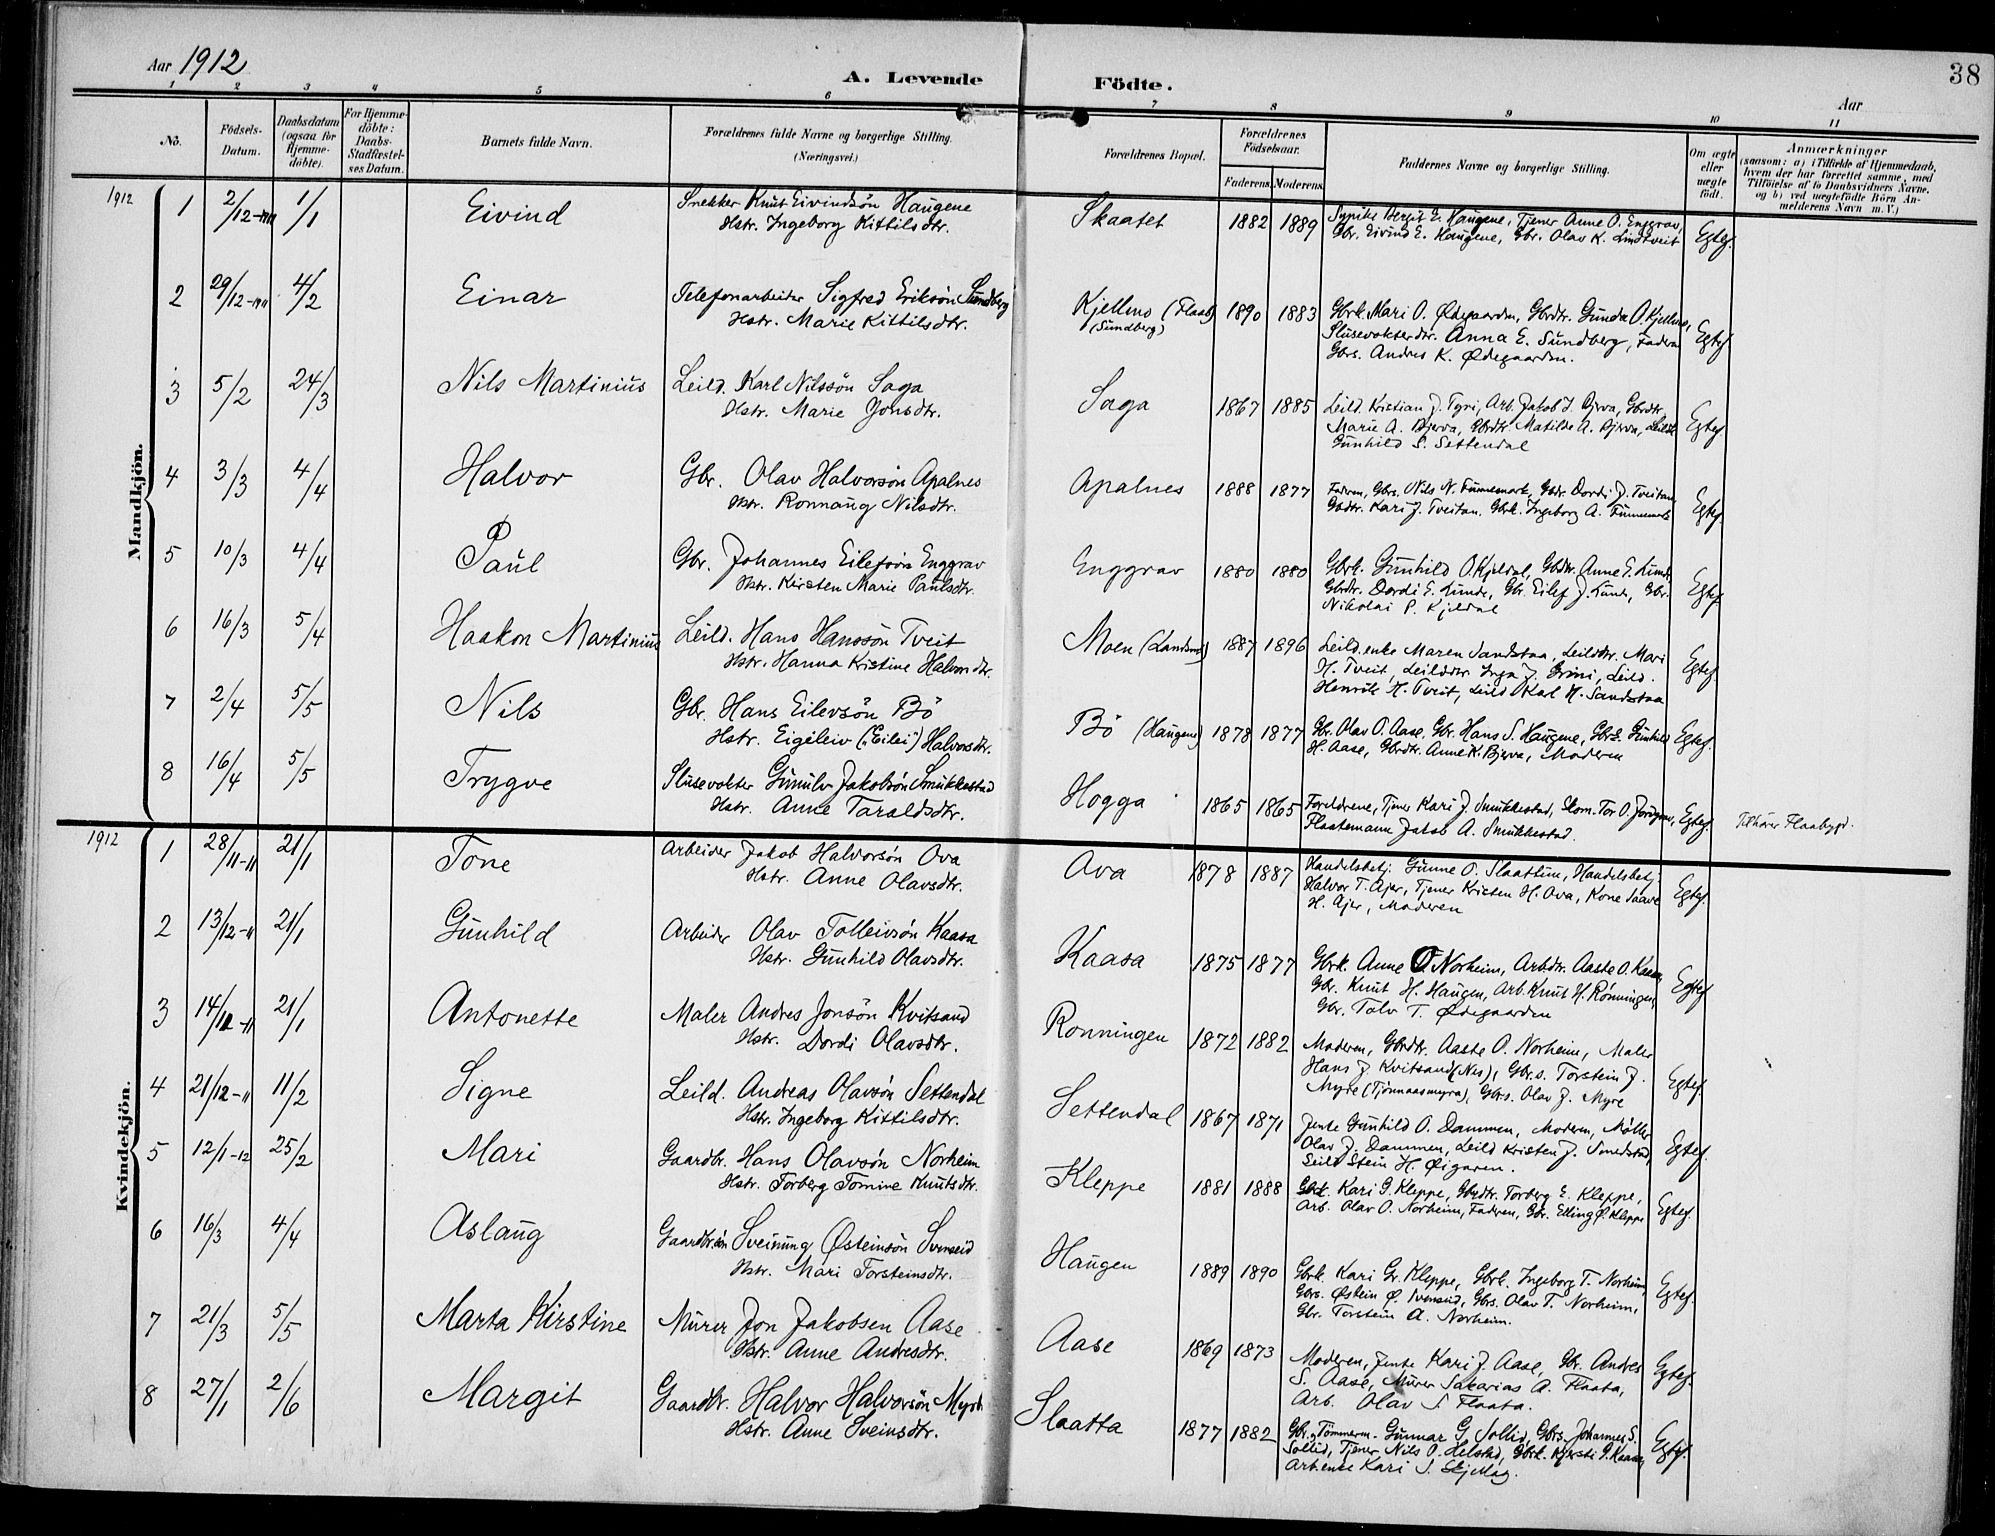 Aar 1912
A. Levende Födte.
38
Aar
1 2 3 4 5 6 7 8 9 10 11
No.
Födsels-Datum.
Daabsdatum (ogsaa for Hjemme-döbte).
For Hjemme-döbte: Daabs-Stadfæstel-ses Datum.
Barnets fulde Navn.
Forældrenes fulde Navne og borgerlige Stilling. (Næringsvei.)
Forældrenes Bopæl.
Forældrenes Födselsaar.
Faderens. Moderens.
Faddernes Navne og borgerlige Stilling.
Om ægte eller uægte födt.
Anmærkninger
(saasom: a) i Tilfælde af Hjemmedaab,
hvem der har forrettet samme, med
Tilföielse af to Daabsvidners Navne.
og b) ved uægtefödte Börn An-
melderens Navn m. V.)
Mandkjön.
1912 1 2/12-1911 1/1 Eivind Snekker Knut Eivindsön Haugene Skaatet 1882 1889 Bergit E. Haugene, Tjener Anne O. Enggrav, Egtef.
Hstr. Ingeborg Kittilsdtr. Gbr. Eivind E. Haugene, Gbr. Olav K. Lindtveit
2 29/12-1911 4/2 Einar Telefonarbeider Sigfred Eriksön Sundberg Kjellmo (Flaab) 1890 1883 Gbrk. Mari O. Ødegaarden, Gbrdtr. Gunda O. Egtef.
Hstr. Marie Kittilsdtr. (Sundberg) Slusevokterdtr. Anna E. Sundberg, Faderen
Gbrs. Andres K. Ødegaarden.
3 5/2 24/3 Nils Martinius Leild. Karl Nilssön Saga Saga 1867 1885 Leild. Kristian J. Tyri, Arb. Jakob J. Bjerva, Gbrdtr. Egtef.
Hstr. Marie Jonsdtr. Marie A. Bjerva, Gbrdtr. Matilde A. Bjerva,
Gunhild S. Settendal
4 3/3 4/4 Halvor Gbr. Olav Halvorsön Apalnes Apalnes 1888 1877 Faderen, Gbrs. Nils N. Gbdr. Dordi J. Tveitan, Egtef.
Hstr. Ronnaug Nilsdtr. Gbdtr. Kari J. Tveitan. Gbrk. Ingeborg A.
5 10/3 4/4 Paul Gbr. Johannes Eilefsön Enggrav Enggrav 1880 1880 Gbrk. Gunhild O. Kjeldal, Gbrdtr. Anne E. Egtef.
Hstr. Kirsten Marie Paulsdtr. Gbrdtr. Dordi E. Gbr. Eilef J. Gbr.
Nikolai P. Kjeldal
6 16/3 5/4 Haakon Martinius Leild. Hans Hanssön Tveit Moen 1887 1896 Leild.enke Maren Sandstaa, Leilddtr. Mari Egtef.
Hstr. Hanna Kristine Halvorsdtr. H. Tveit, Leilddtr. Inga J. Leild.
Henrik H. Tveit, Leild. Karl H. Sandstaa
7 2/4 5/5 Nils Gbr. Hans Eilevsön Bö Bö (Haugene) 1878 1877 Gbr. Olav O. Aase, Gbr. Hans S. Haugene, Gunhild Egtef.
Hstr. Eigeleiv ("Eilei") Halvorsdtr. H. Aase, Gbrdtr. Anne K. Bjerva, Moderen
8 16/4 5/5 Trygve Slusevokter Gunulv Jakobsön Smukkestad Hogga 1865 1865 Foreldrene, Tjener Kari J. Smukkestad, Skom. Tor O. Egtef. Tilhörer Flaabygd.
Hstr. Anne Taraldsdtr. Jakob A. Smukkestad.
Kvindekjön.
1912 1 28/11-11 21/1 Tone Arbeider Jakob Halvorsön Ova Ova 1878 1887 Handelsbetj. Gunne O. Slaattun, Handelsbetj. Egtef.
Hstr. Anne Olavsdtr. Halvor T. Ajer, Tjener Kristen H. Ova, Kone
H. Ajer, Moderen
2 13/12-11 21/1 Gunhild Arbeider Olav Tolleivsön Kaasa Kaasa 1875 1877 Gbrk. Anne O. Norheim, Arb.dtr. Aaste O. Kaasa, Egtef.
Hstr. Gunhild Olavsdtr. Gbr. Knut H. Haugen, Arb. Knut H. Rønningen,
Gbr. Talv T. Ødegaarden
3 14/12-11 21/1 Antonette Maler Andres Jonsön Kvitsand Ronningen 1872 1882 Moderen, Gbrdtr. Aaste O. Norheim, Maler Egtef.
Hstr. Dordi Olavsdtr. Hans J. Kvitsand (Nes), Gbrs. Torstein J.
Myre (Tjönnaasmyra), Gbrs. Olav J. Myre
4 21/12-11 11/2 Signe Leild. Andreas Olavsön Settendal Settendal 1867 1871 Jente Gunhild O. Dammen, Moderen, Møller Egtef.
Hstr. Ingeborg Kittilsdtr. Olav J. Dammen, Leild Kristen J. Smedstad,
Leild Stein H. Øigaren.
5 12/1-12 25/2 Mari Gaardbr. Hans Olavsön Norheim Kleppe 1881 1888 Gbrk. Kari G. Kleppe, Gbrdtr. Torberg E. Kleppe, Egtef.
Hstr. Torberg Tomine Knutsdtr. Arb. Olav O. Norheim, Faderen, Gbr. Elling Ø. Kleppe
6 16/3 4/4 Aslaug Gaardbr.sön Sveinung Østeinsön Svenseid Haugen 1889 1890 Gbrk. Kari Gr. Kleppe, Gbrk. Ingeborg T. Norheim, Egtef.
Hstr. Mari Torsteinsdtr. Gbrs. Østein Ø. Svenseid, Gbrs. Olav T. Norheim,
Gbr. Torstein A. Norheim.
7 21/3 5/5 Marta Kirstine Murer Jon Jakobsen Aase Aase 1869 1873 Moderen, Jente Kari J. Aase, Gbr. Andres Egtef.
Hstr. Anne Andresdtr. S. Aase, Murer Sakarias A. Flaata,
Arb. Olav S. Flaata.
8 27/1 2/6 Margit Gaardbr. Halvor Halvorsön Slaatta 1877 1882 Gbr. Tömmerm. Gunnar G. Sollid, Gbrs. Johannes S. Egtef.
Hstr. Anne Sveinsdtr. Sollid, Tjener Nils O. Helstad, Gbrk. Kjersti
Arb.enke Kari S.